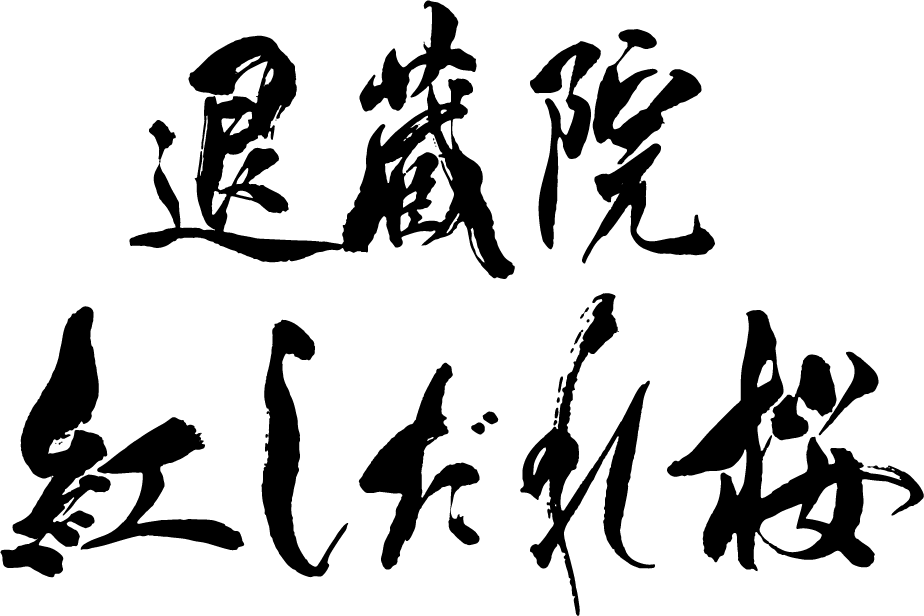 退蔵院
紅しだれ桜